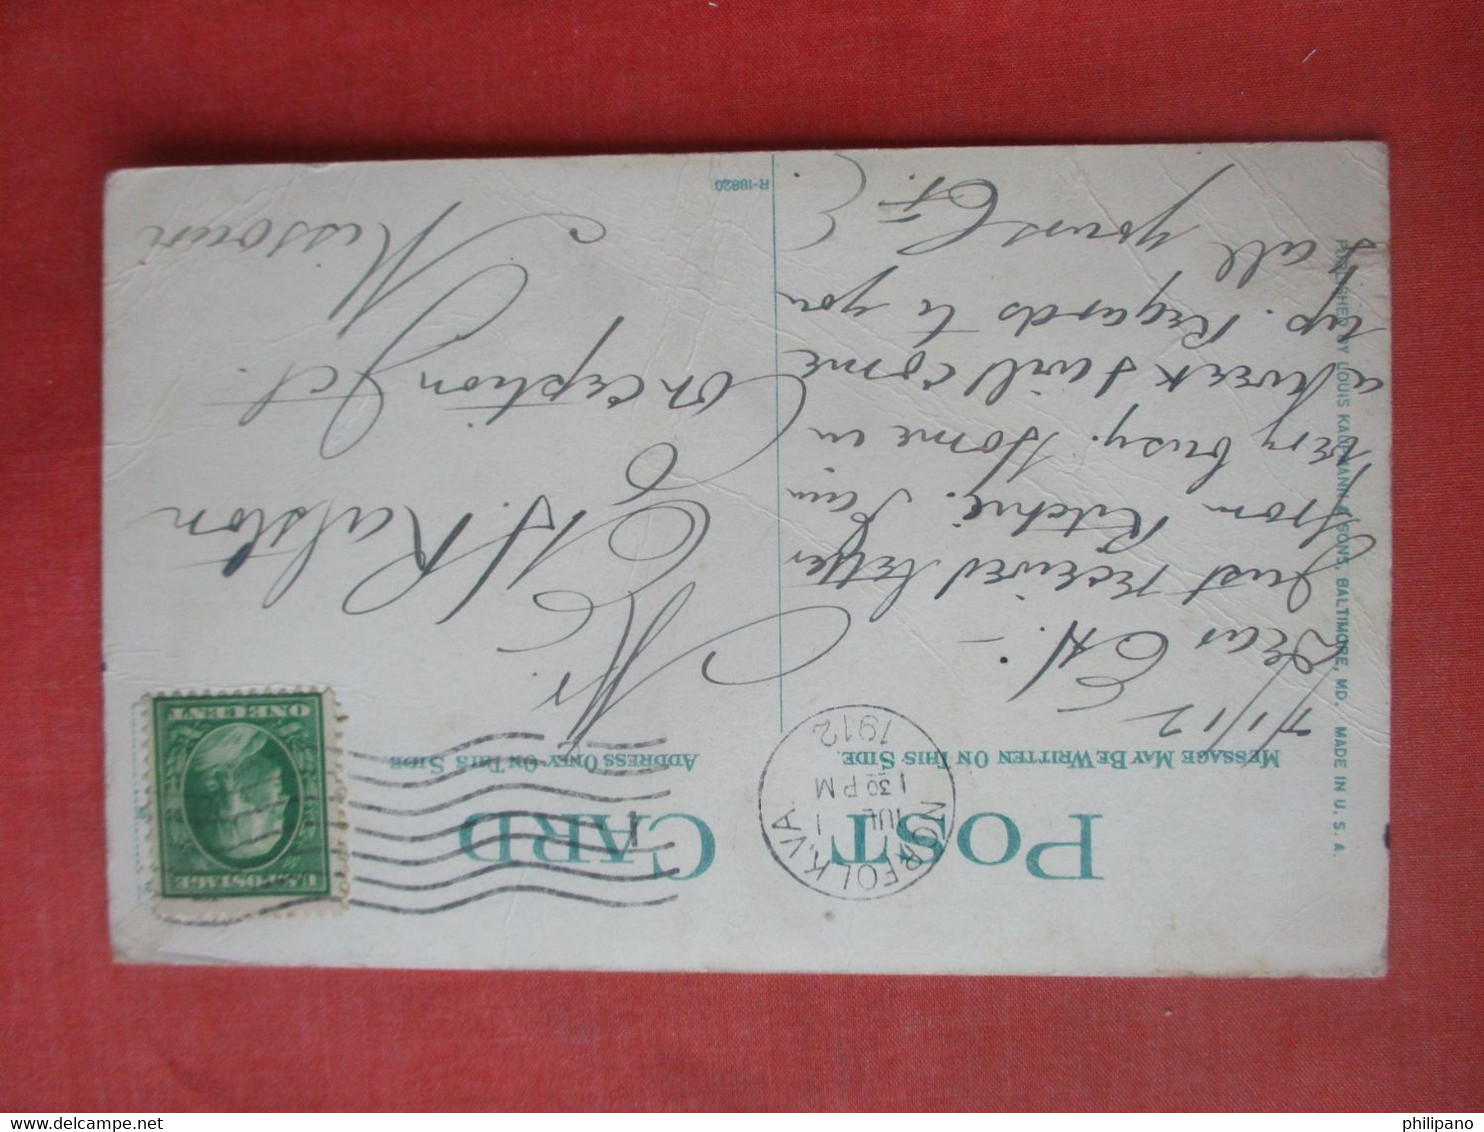 POST CARD
MESSAGE MAY BE WRITTEN ON THIS SIDE.
ADDRESS ONLY ON THIS SIDE
NORFOLK, VA.
JUL 1
1 30 PM
1912
U.S. POSTAGE
ONE CENT
7/1/12
Dear EH:-
Just received letter
from Ritchie. I am
very busy. Home in
a week & will come
up. Regards to you
& all yours
Mr.
E H. Ralston
Conception Jct.
Missouri
R-18820
PUBLISHER BY LOUIS KAUFMANN & SONS, BALTIMORE, MD. MADE IN U. S. A.
philipano